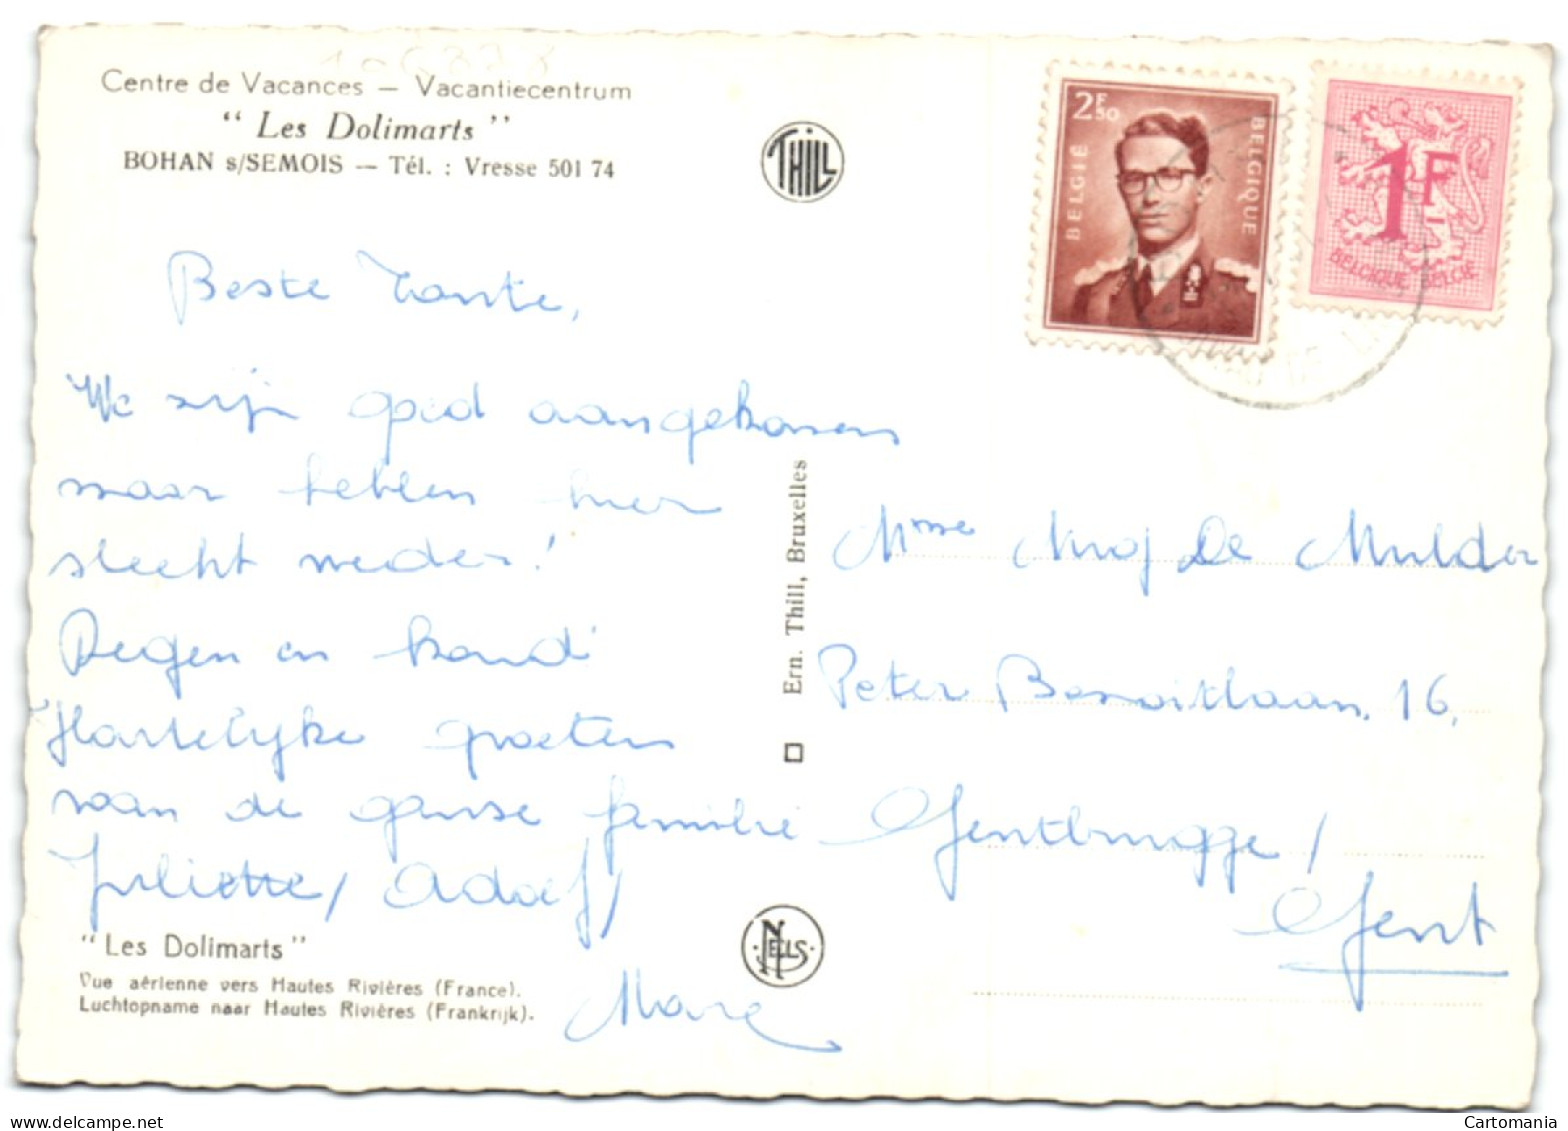 Centre de Vacances — Vacantiecentrum
“ Les Dolimarts ”
BOHAN s/SEMOIS — Tél. : Vresse 501 74
THILL
2F50
BELGIË
BELGIQUE
1F
BELGIQUE BELGIË
Beste Tante,
We zijn goed aangekomen
maar hebben hier
slecht weder!
Regen en koud
Hartelijke groeten
van de ganse familie
Juliette, Adolf,
Marc
Ern. Thill, Bruxelles
Mme De Mulder
Peter Benoitlaan, 16,
Gentbrugge /
Gent
NELS
“Les Dolimarts”
Vue aérienne vers Hautes Rivières (France).
Luchtopname naar Hautes Rivières (Frankrijk).
www.delcampe.net
Cartomania